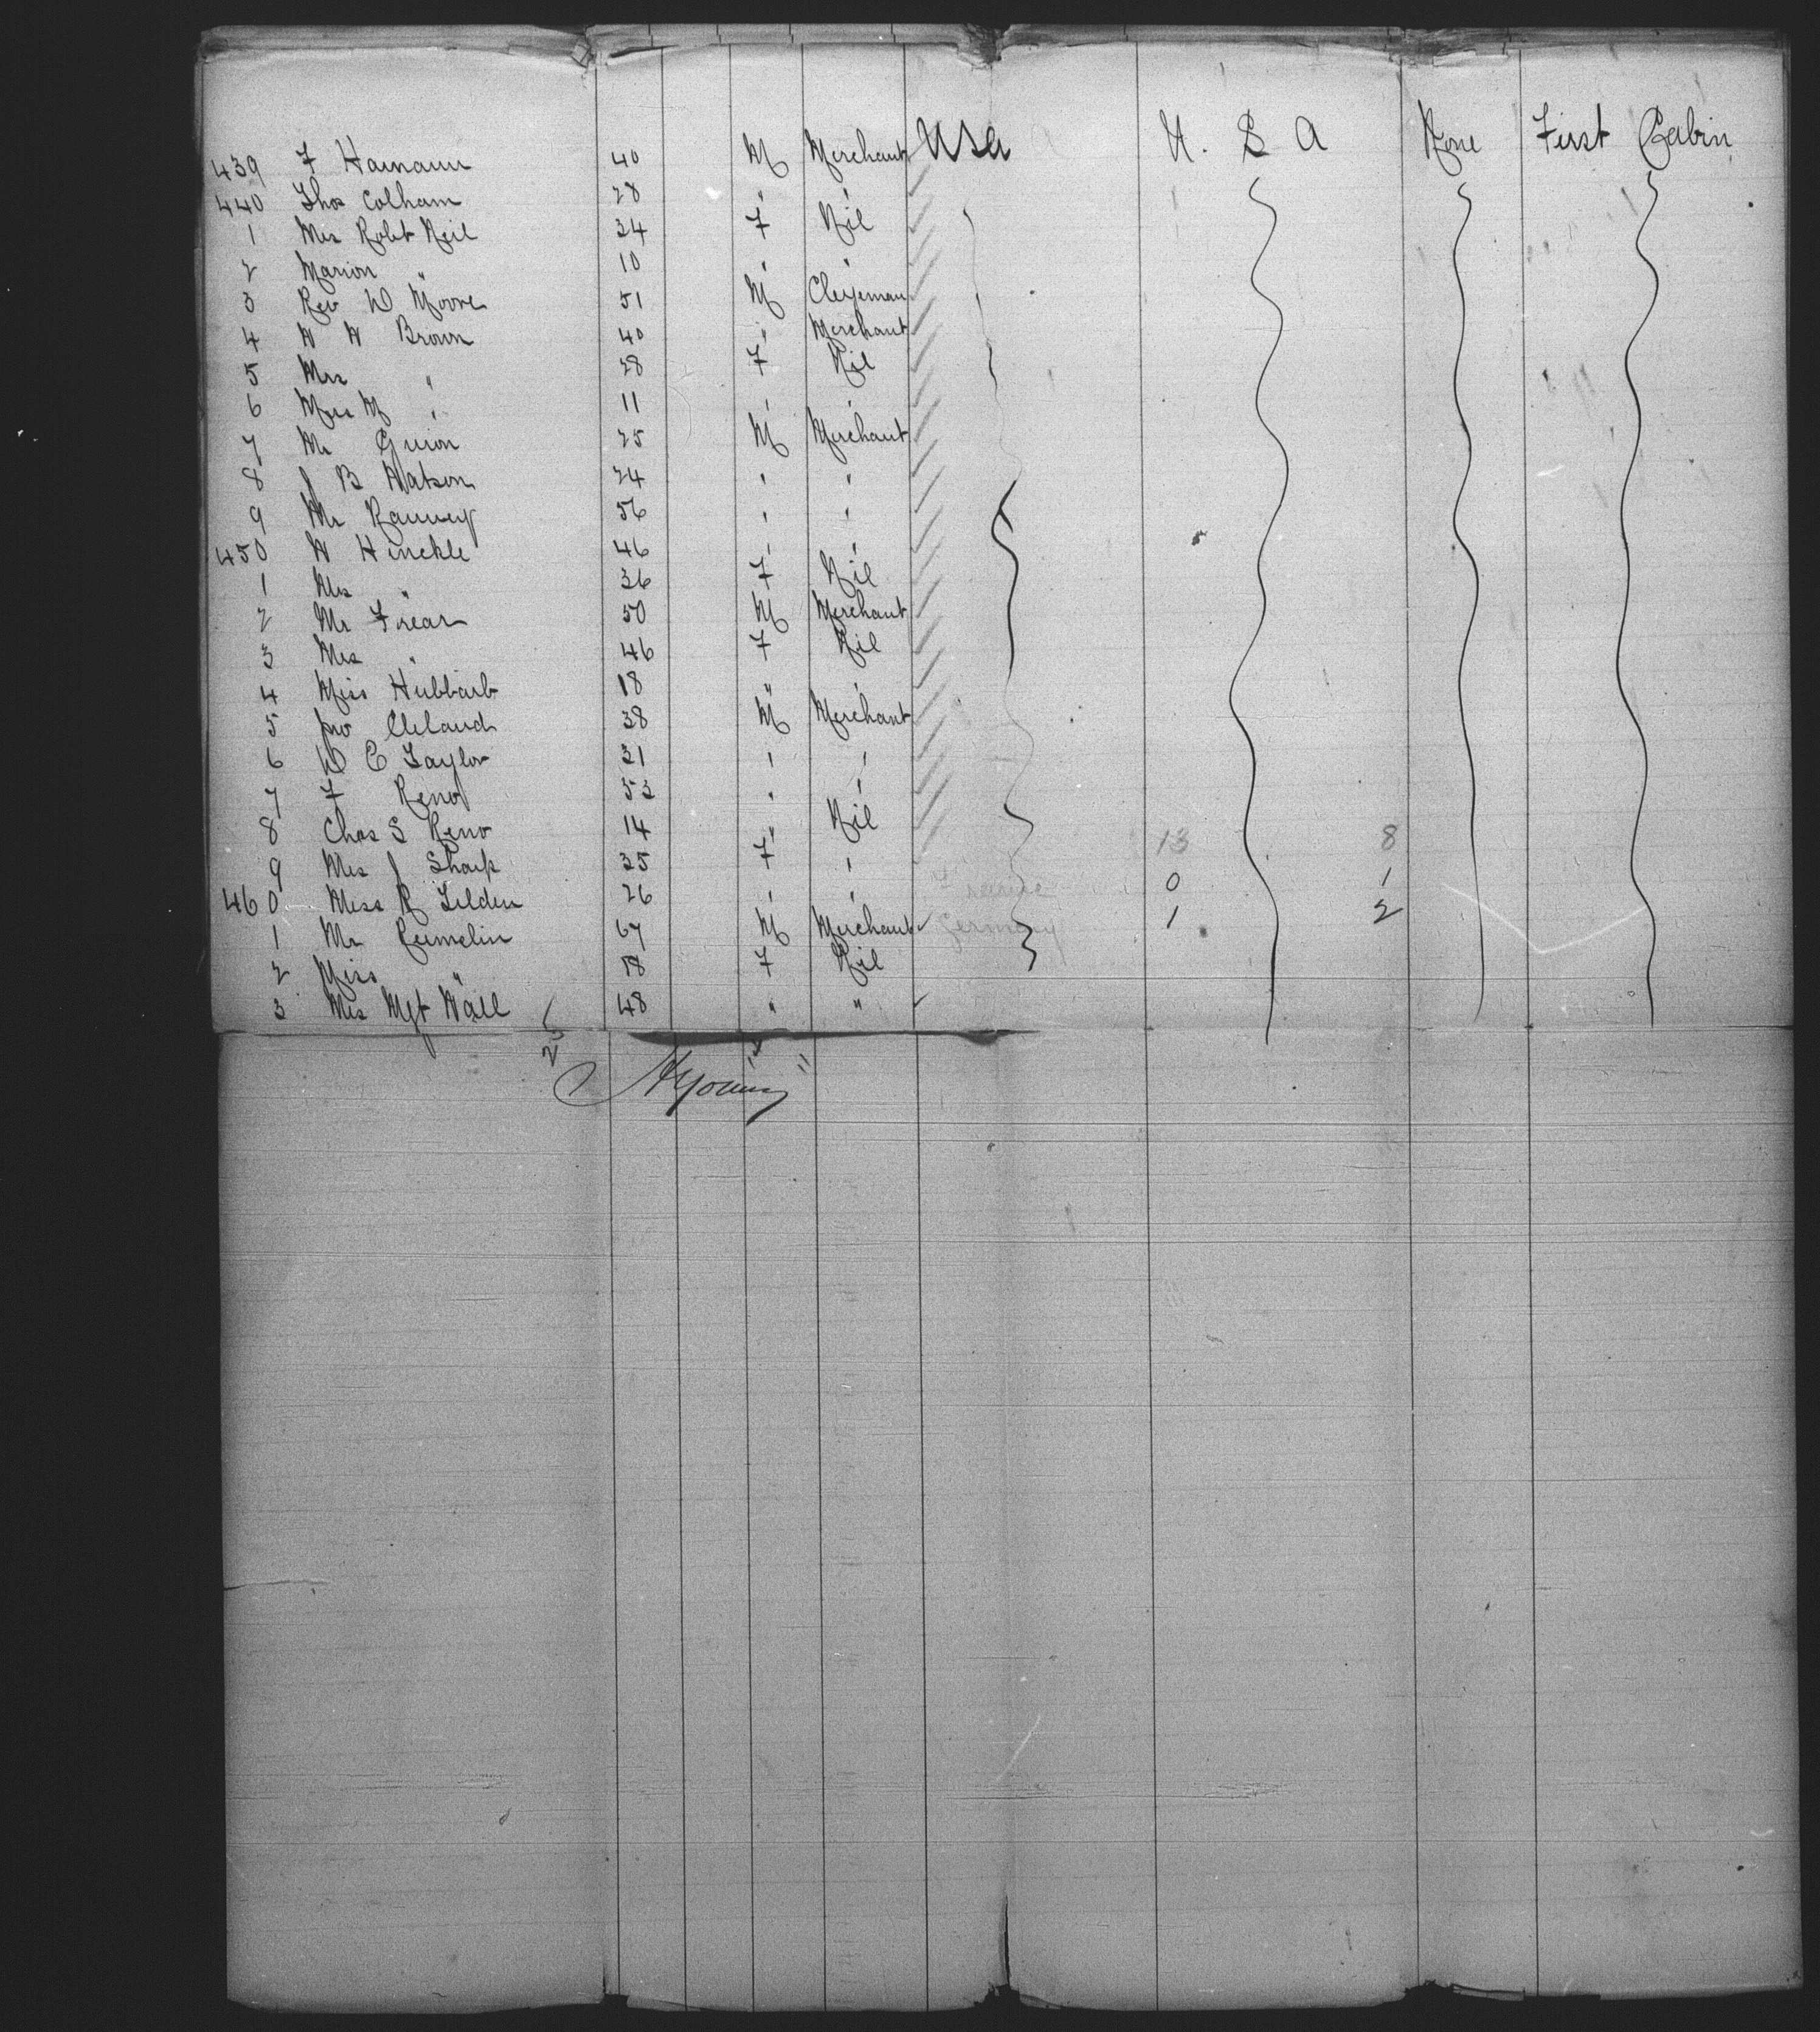 439 F Hamann 40 M Merchant USA U. S A None First Cabin
440 Thos Colham 28 " "
1 Mrs Robt Neil 34 F Nil
2 Marion " 10 " "
3 Rev D Moore 51 M Clergeman
4 W W Brown 40 " Merchant
5 Mrs " 28 F Nil
6 Miss M " 11 " "
7 Mr Guion 25 M Merchant
8 J B Watson 24 " "
9 Mr Ranney 56 " "
450 W Hinckle 46 " "
1 Mrs " 36 F Nil
2 Mr Frear 50 M Merchant
3 Mrs " 46 F Nil
4 Miss Hubbarb 18 " "
5 Jno Cleland 38 M Merchant
6 W E Taylor 31 " "
7 F Reno 53 " "
8 Chas S Reno 14 " Nil 13 8
9 Mrs J Sharp 35 F "
460 Miss R Tilden 26 " " 0 1
1 Mr Rumelin 67 M Merchant Germany 1 2
2 Miss " 18 F Nil
3 Mrs Mgt Wall 48 " "